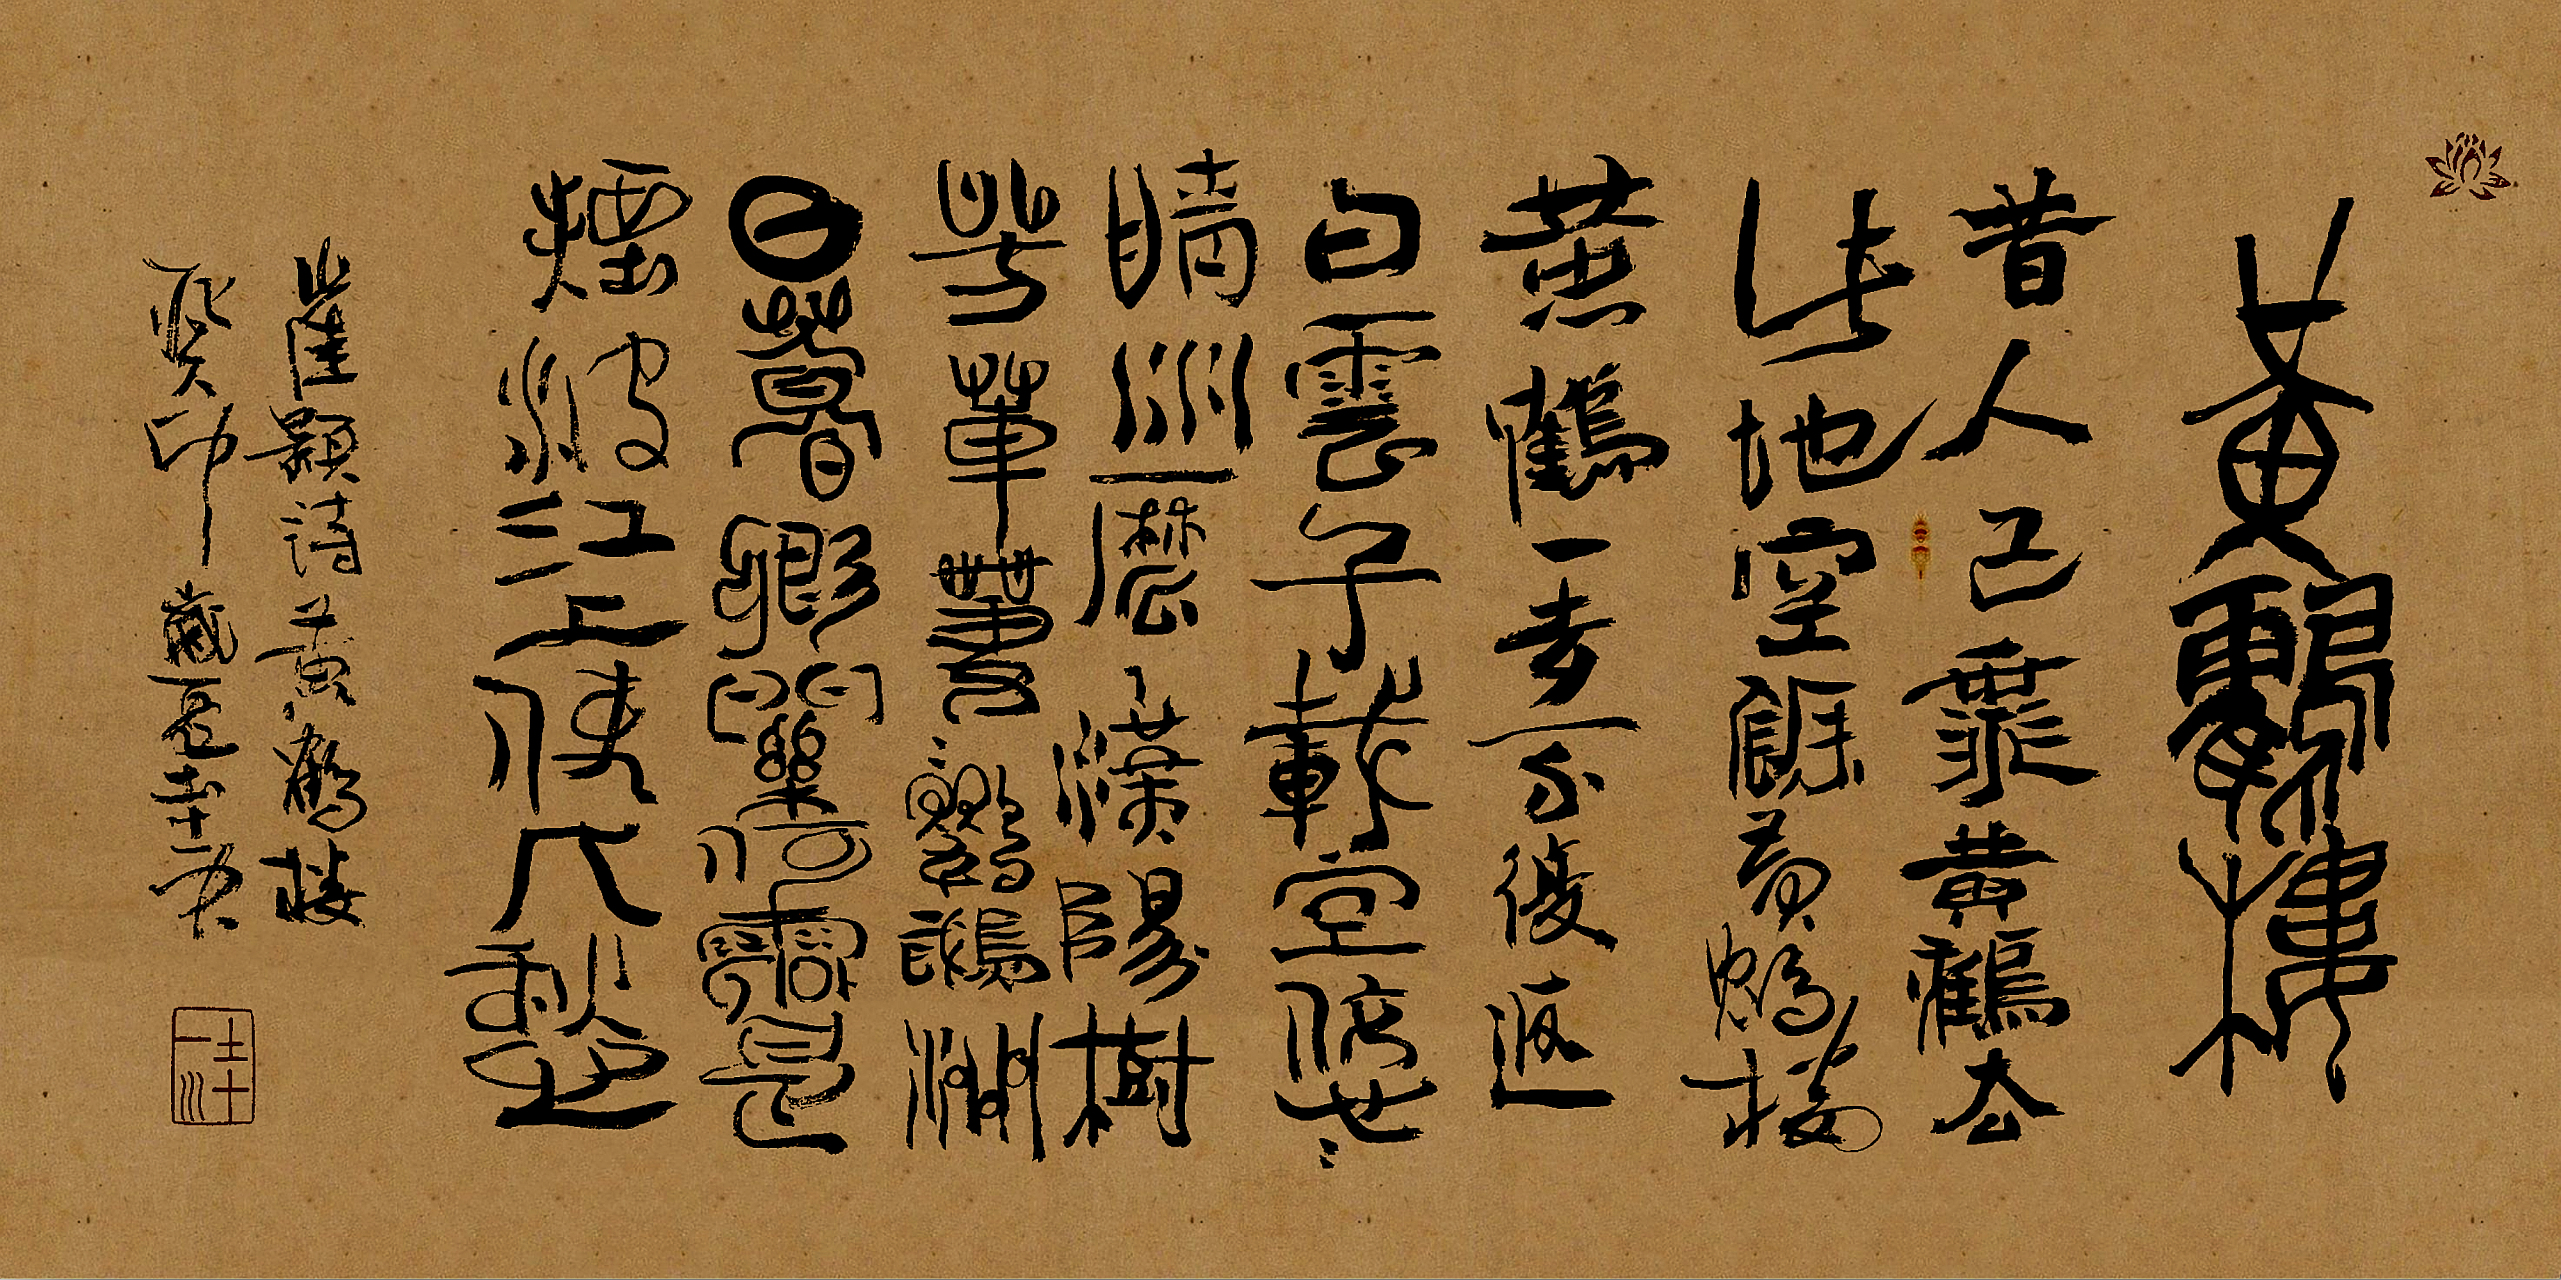 黃鶴樓
昔人已乘黃鶴去
此地空餘黃鶴樓
黃鶴一去不復返
白雲千載空悠〻
晴川歷〻漢陽樹
芳草萋〻鸚鵡洲
日暮鄉關何處是
煙波江上使人愁
崔顥詩黃鶴樓
癸卯歲